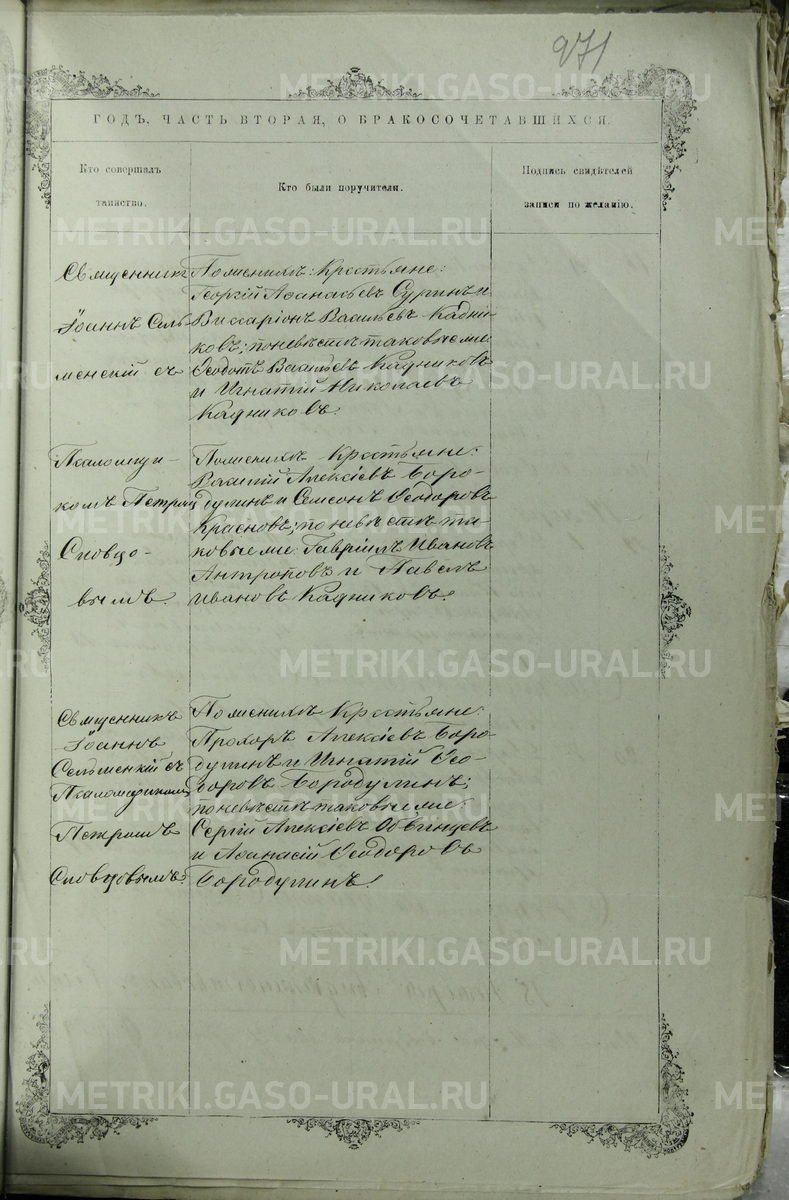 271
ГОДЪ, ЧАСТЬ ВТОРАЯ, О БРАКОСОЧЕТАВШИХСЯ.
Кто совершалъ
таинство.
Кто были поручители.
Подпись свидѣтелей
записи по желанію.
Священникъ
Іоаннъ Сель
менскій съ
По женихѣ: Крестьяне:
Георгій Аѳанасьевъ Суринъ и
Виссаріонъ Васильевъ Кадни
ковъ; по невѣстѣ таковые же
Ѳеодотъ Васильевъ Кадниковъ
и Игнатій Николаевъ
Кадниковъ.
Псаломщи-
комъ Петромъ
Словцо-
вымъ.
По женихѣ Крестьяне:
Василій Алексіевъ Боро-
дулинъ и Семсонъ Ѳеодоровъ
Красновъ; по невѣстѣ та-
ковые же Гавріилъ Ивановъ
Антроповъ и Павелъ
Ивановъ Кадниковъ.
Священникъ
Іоаннъ
Сельменскій съ
Псаломщикомъ
Петромъ
Словцовымъ.
По женихѣ Крестьяне:
Прохоръ Алексіевъ Боро-
дулинъ и Игнатій Ѳео-
доровъ Бородулинъ;
по невѣстѣ таковые же:
Сергій Алексіевъ
и Аѳанасій Ѳеодоровъ
Бородулинъ.
METRIKI.GASO-URAL.RU